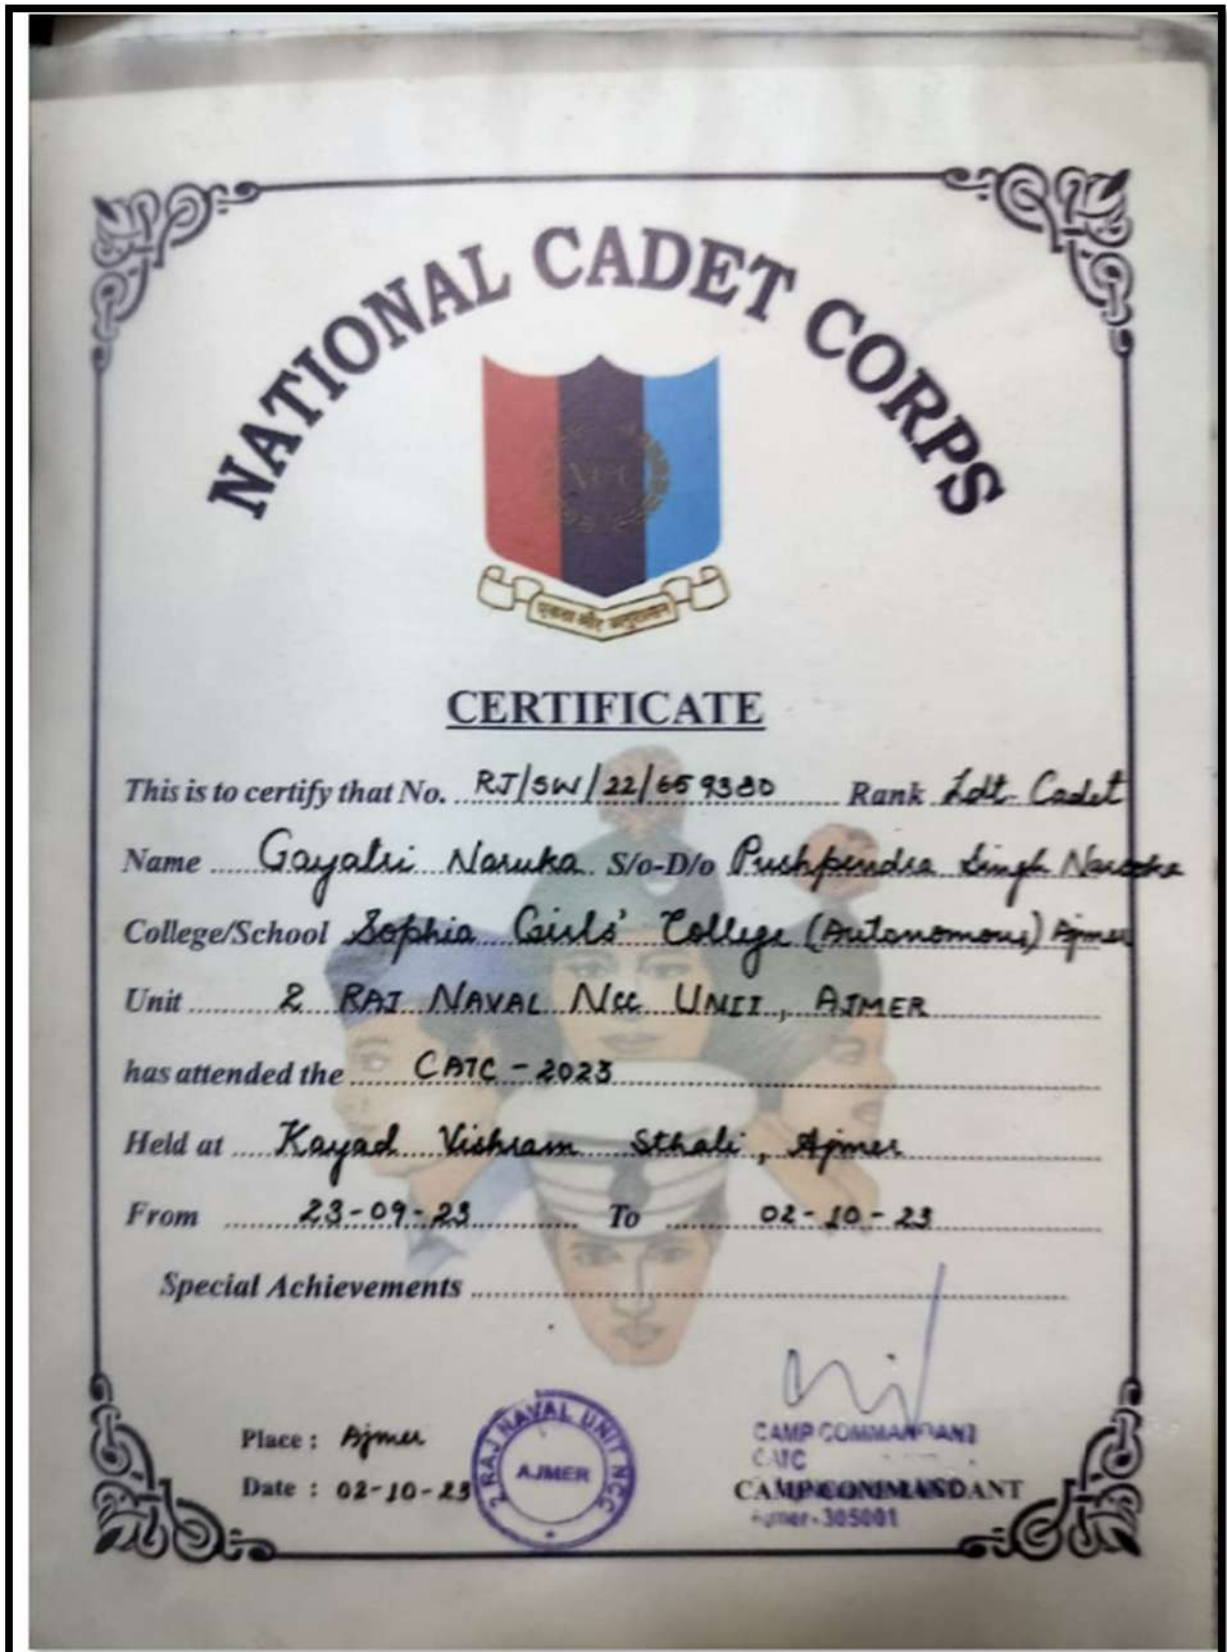 NATIONAL CADET CORPS
एकता और अनुशासन
CERTIFICATE
This is to certify that No. RJ/SW/22/659380 Rank Ldt Cadet
Name Gayatri Naruka S/o-D/o Pushpendra Singh Narooka
College/School Sophia Girls' College (Autonomous) Ajmer
Unit 2 RAJ NAVAL NCC UNIT, AJMER
has attended the CATC - 2023
Held at Kayad Vishram Sthali, Ajmer
From 23-09-23 To 02-10-23
Special Achievements
Place : Ajmer
Date : 02-10-23
2 RAJ NAVAL UNIT NCC
AJMER
CAMP COMMANDANT
CATC
CAMP COMMANDANT
Ajmer-305001